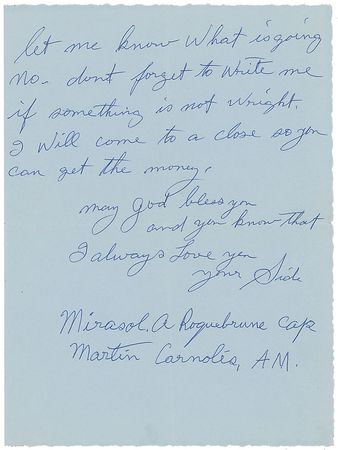 let me know What is going
no. dont forget to Write me
if something is not Wright.
I Will come to a close so you
can get the money.
may God bless you
and you know that
I always Love you
your Side
Mirasol. A Roquebrune Cap
Martin Carnolés, A.M.